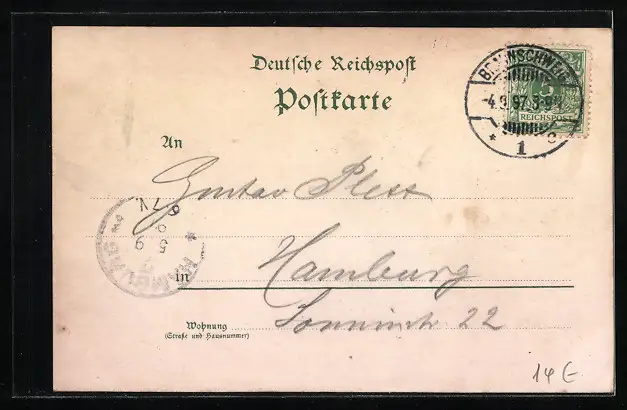 Deutsche Reichspost
Postkarte
BRAUNSCHWEIG
5
REICHSPOST
4.9.97.
* 1 c
An
Gustav Pless
HAMBURG
5
9
in Hamburg
Wohnung
(Straße und Hausnummer)
Sonninstr 22
14 E